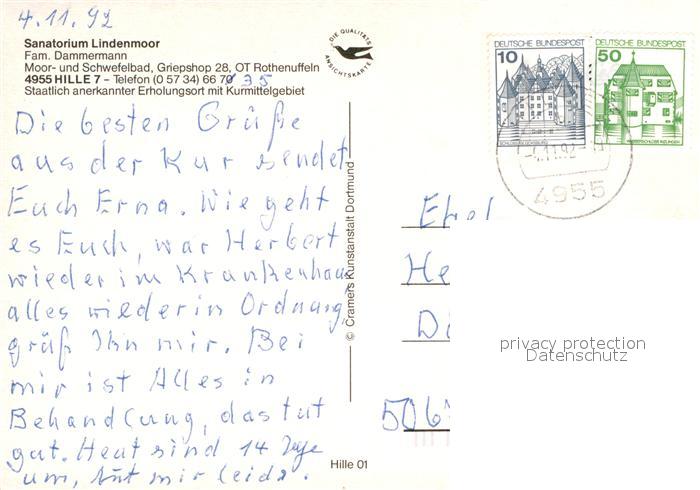 4.11.92
Sanatorium Lindenmoor
Fam. Dammermann
Moor- und Schwefelbad, Griepshop 28, OT Rothenuffeln
4955 HILLE 7 – Telefon (0 57 34) 66 70 35
Staatlich anerkannter Erholungsort mit Kurmittelgebiet
DIE QUALITÄTS
ANSICHTSKARTE
Die besten Grüße
aus der Kur sendet
Euch Erna. Wie geht
es Euch, war Herbert
wieder im Krankenhaus
alles wieder in Ordnung,
grüß Ihn mir. Bei
mir ist Alles in
Behandlung, das tut
gut. Heut sind 14 Tage
um, tut mir leid.
© Cramers Kunstanstalt Dortmund
Hille 01
DEUTSCHE BUNDESPOST
10
SCHLOSS GLÜCKSBURG
DEUTSCHE BUNDESPOST
50
WASSERSCHLOSS INZLINGEN
-4.11.92
4955
He
Di
506
privacy protection
Datenschutz